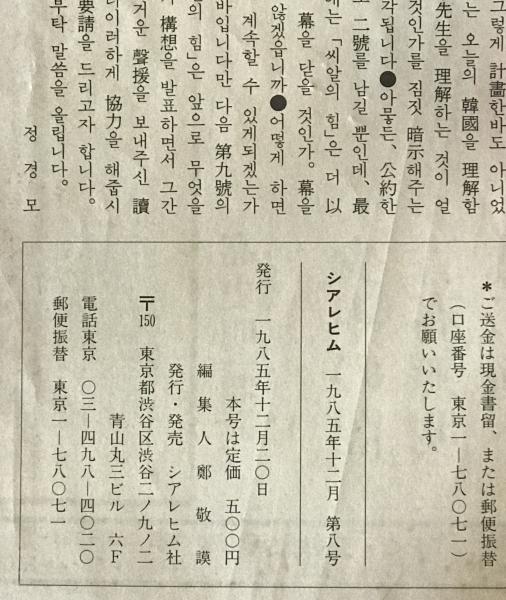 그렇게 計畫한바도 아니었
는 오늘의 韓國을 理解함
先生을 理解하는 것이 얼
것인가를 짐짓 暗示해주는
각됩니다●아무튼、公約한
二號를 남길 뿐인데、最
에는 「씨알의 힘」은 더 以
幕을 닫을 것인가。幕을
않겠읍니까●어떻게 하면
계속할 수 있게되겠는가
바입니다만 다음 第九號의
의 힘」은 앞으로 무엇을
構想을 발표하면서 그간
거운 聲援을 보내주신 讀
이러하게 協力을 해줍시
要請을 드리고자 합니다。
부탁 말씀을 올립니다。
정 경 모
＊ご送金は現金書留、または郵便振替
（口座番号 東京一―七八〇七一）
でお願いいたします。
シアレヒム 一九八五年十二月 第八号
発行 一九八五年十二月二〇日
本号は定価 五〇〇円
編集人 鄭敬謨
発行・発売 シアレヒム社
〒150 東京都渋谷区渋谷二ノ九ノ二
青山丸三ビル 六F
電話東京 〇三―四九八―四〇二〇
郵便振替 東京一―七八〇七一